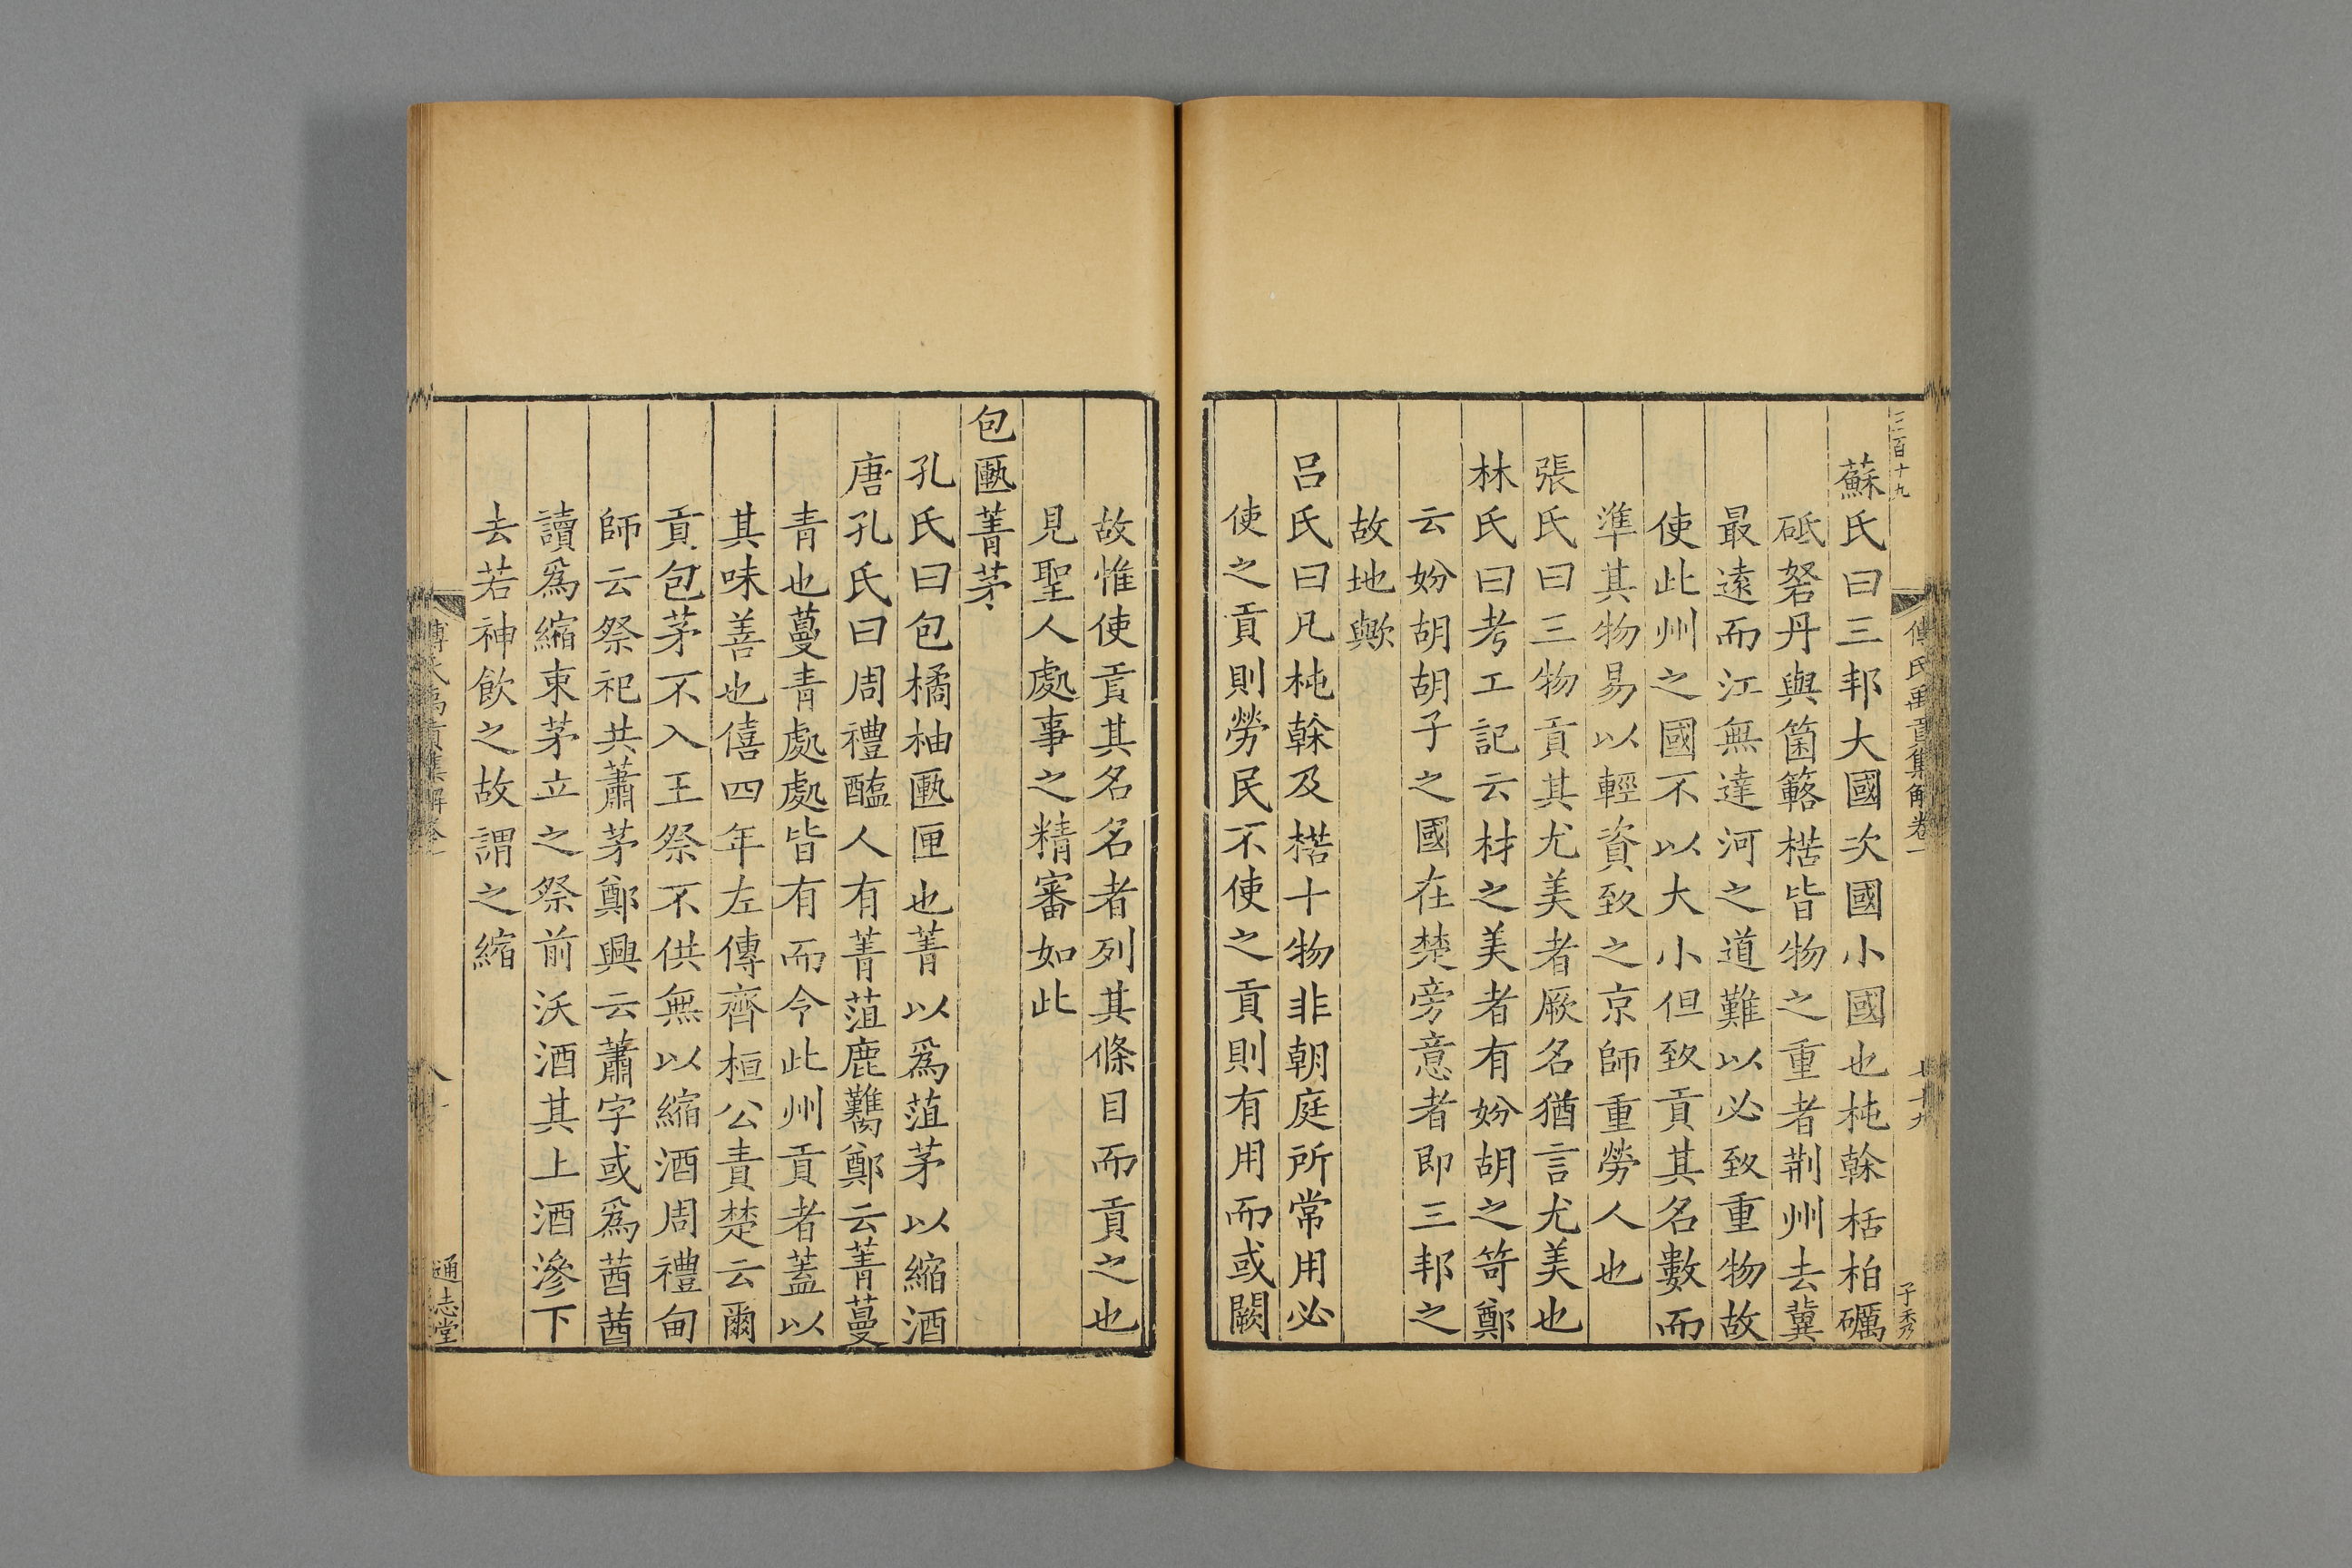 三百十九
蘇氏曰三邦大國次國小國也杶榦栝柏礪
砥砮丹與箘簵楛皆物之重者荆州去冀
最遠而江無達河之道難以必致重物故
使此州之國不以大小但致貢其名數而
準其物易以輕資致之京師重勞人也
張氏曰三物貢其尤美者厥名猶言尤美也
林氏曰考工記云材之美者有妢胡之笴鄭
云妢胡胡子之國在楚旁意者即三邦之
故地歟
呂氏曰凡杶榦及楛十物非朝庭所常用必
使之貢則勞民不使之貢則有用而或闕
傅氏禹貢集解卷一
子秀
故惟使貢其名名者列其條目而貢之也
見聖人處事之精審如此
包匭菁茅
孔氏曰包橘柚匭匣也菁以爲菹茅以縮酒
唐孔氏曰周禮醢人有菁菹鹿臡鄭云菁蔓
青也蔓青處處皆有而令此州貢者蓋以
其味善也僖四年左傳齊桓公責楚云爾
貢包茅不入王祭不供無以縮酒周禮甸
師云祭祀共蕭茅鄭興云蕭字或爲莤莤
讀爲縮束茅立之祭前沃酒其上酒滲下
去若神飲之故謂之縮
傅氏禹貢集解卷一
通志堂